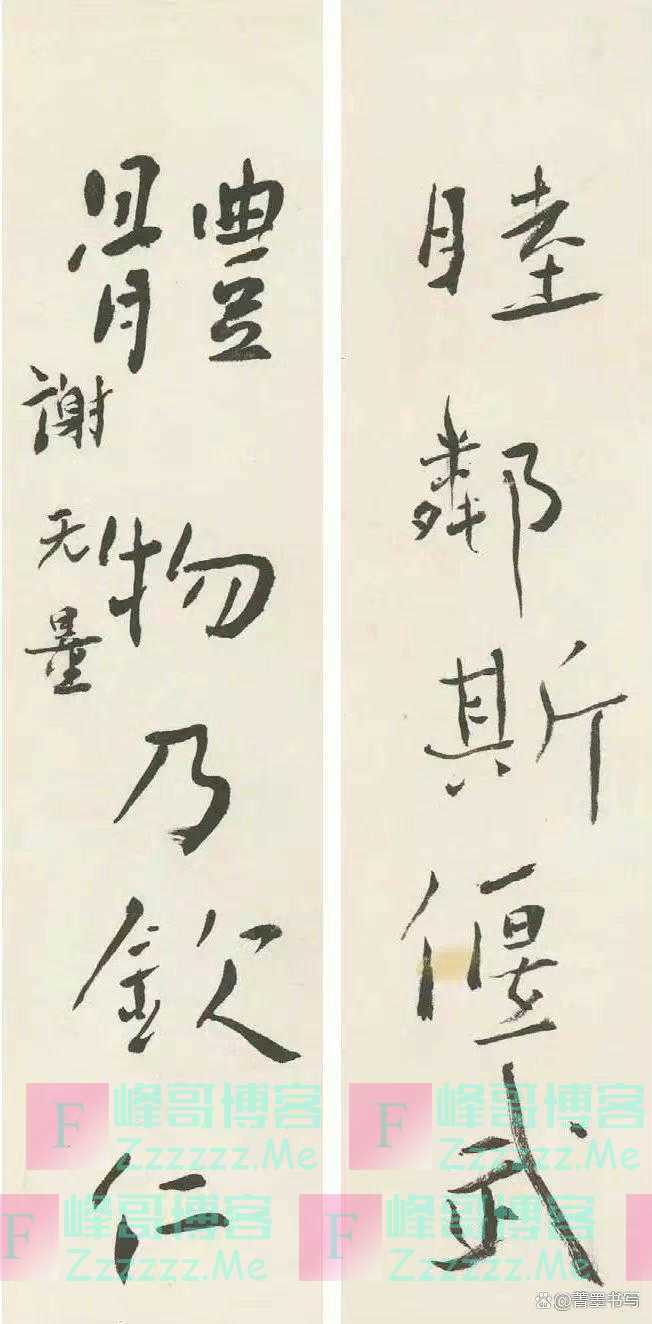 睦鄰斯偃武
體物乃欽仁
謝无量
F 峰哥博客
Zzzzzz.Me
F 峰哥博客
Zzzzzz.Me
F 峰哥博客
Zzzzzz.Me
F 峰哥博客
Zzzzzz.Me
@菁墨书写